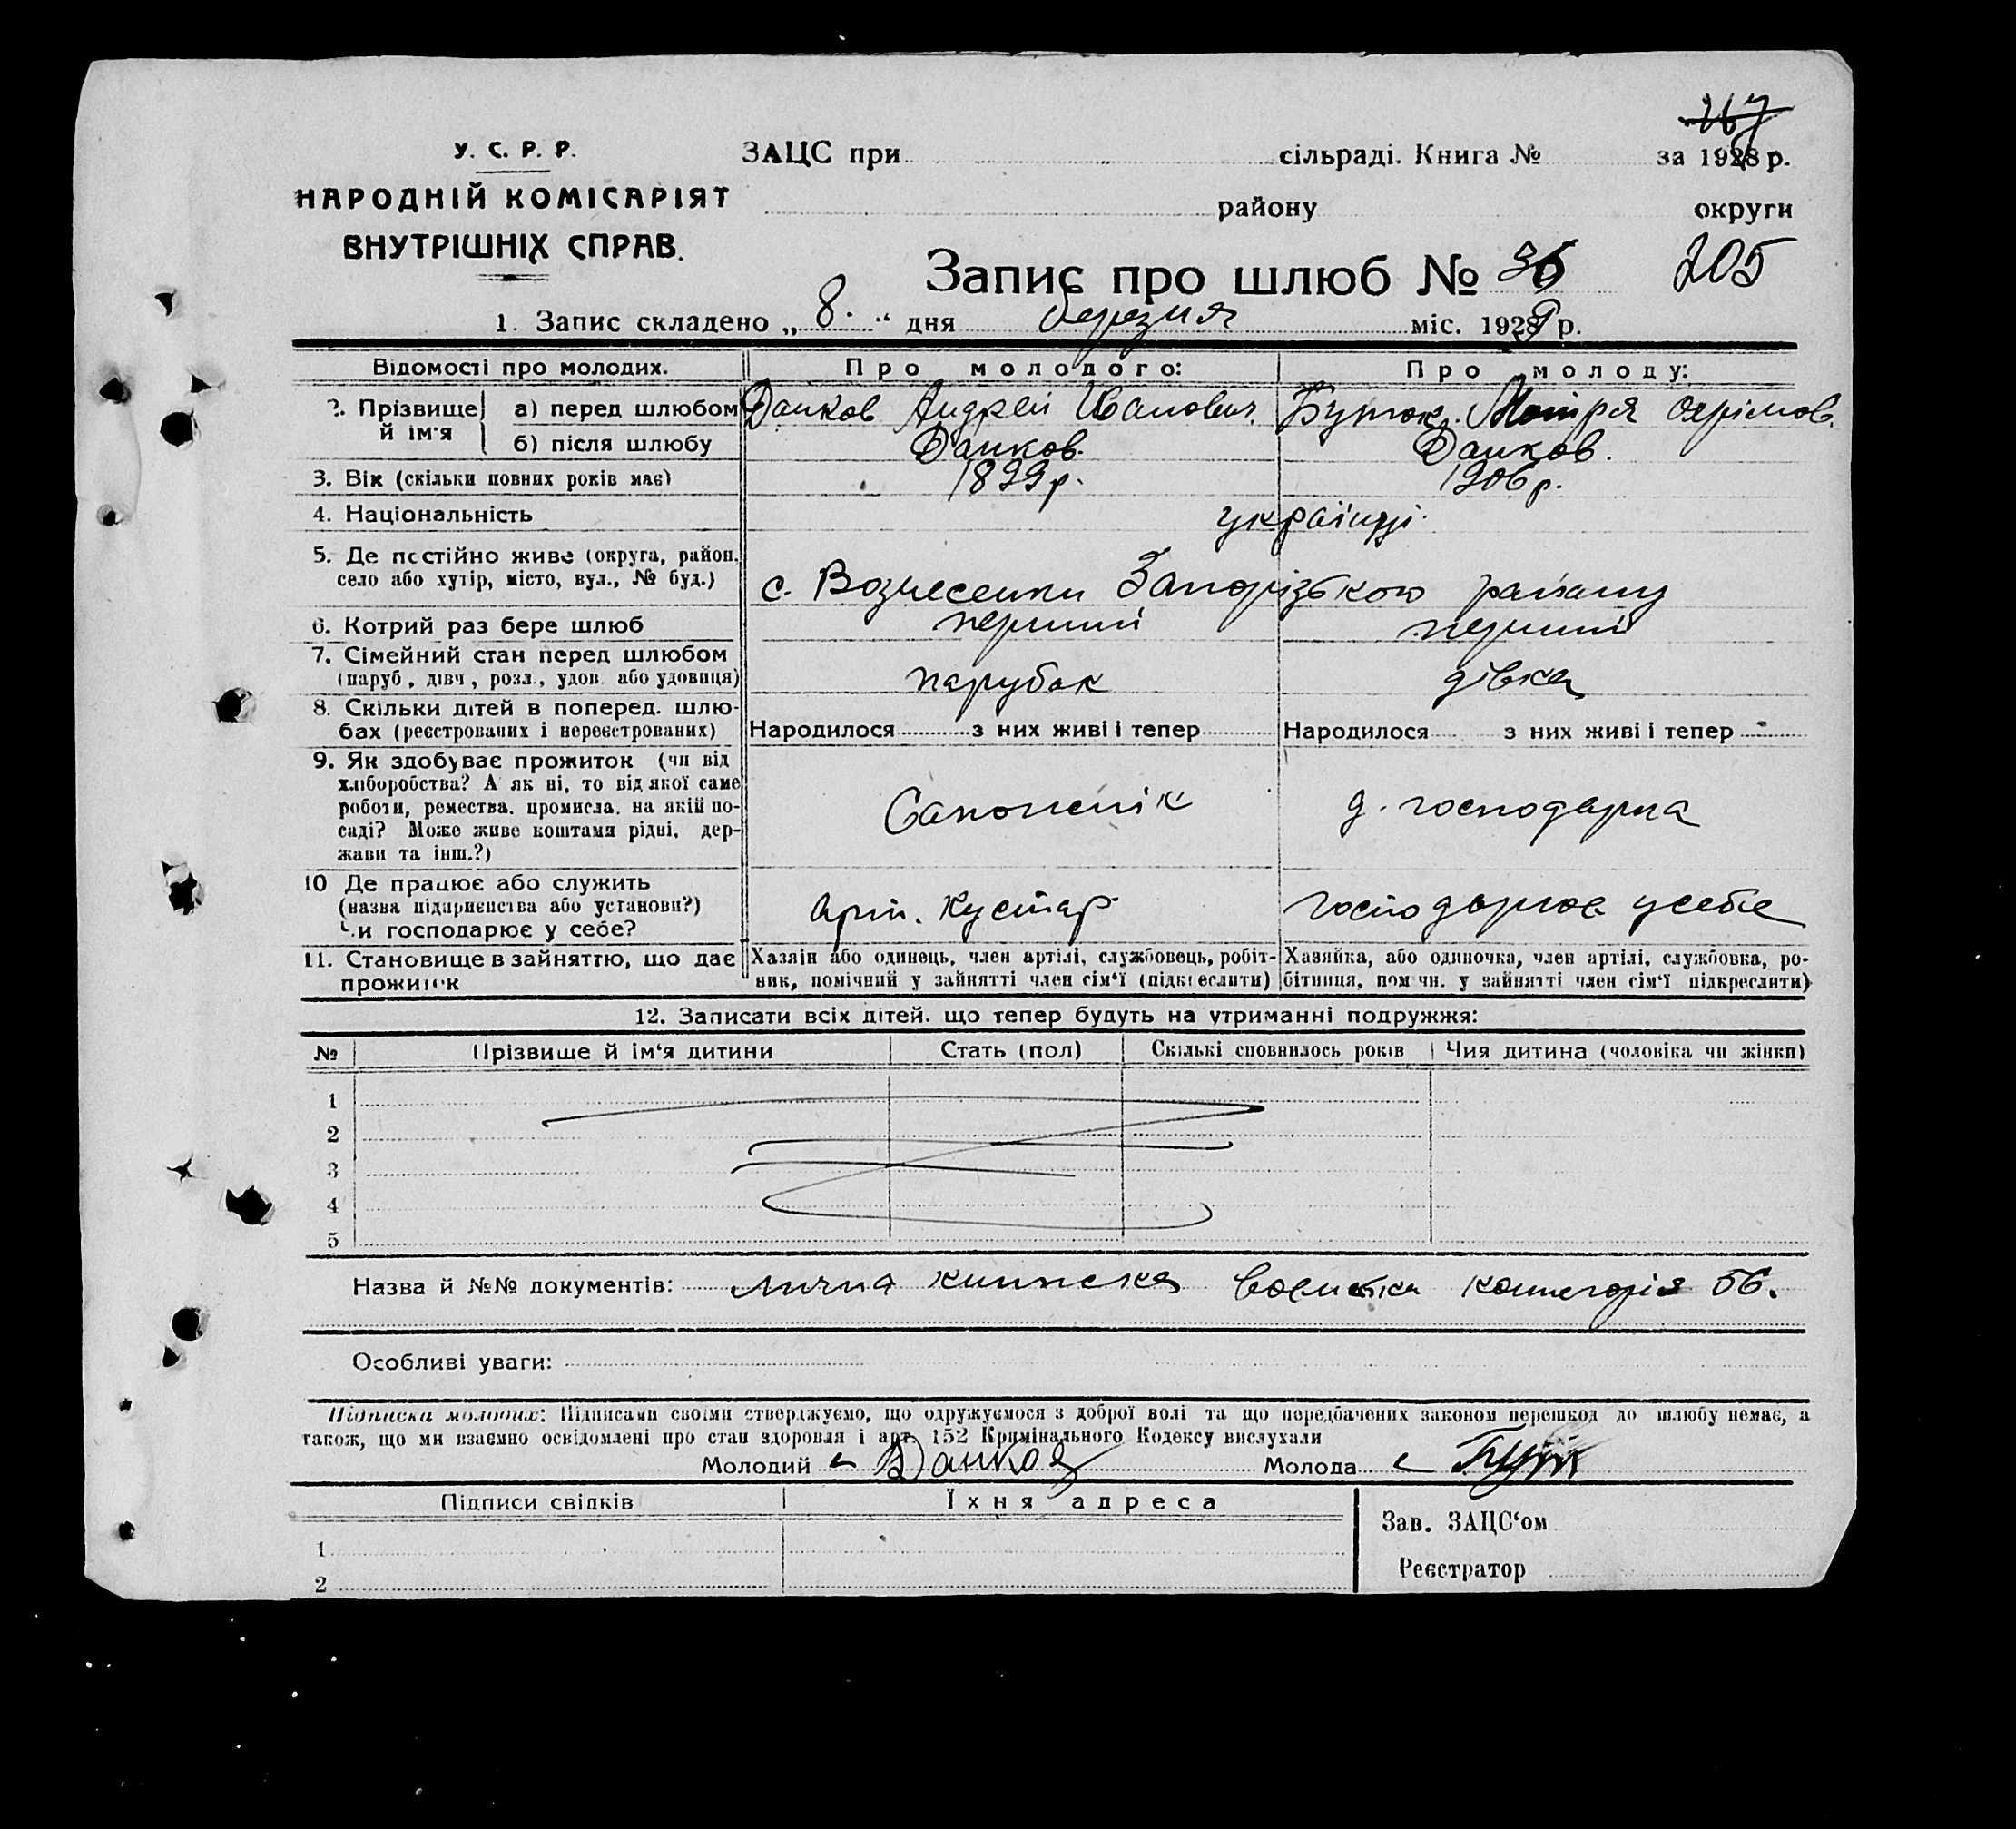 267
У. С. Р. Р.
НАРОДНІЙ КОМІСАРІЯТ
ВНУТРІШНІХ СПРАВ.
ЗАЦС при сільраді. Книга № за 1929 р.
району округи
Запис про шлюб № 36 205
1. Запис складено „8.“ дня березня міс. 1929 р.
Відомості про молодих. Про молодого: Про молоду:
2. Прізвище й ім'я а) перед шлюбом Данков Андрей Іванович. Бутюк. Мотря Охрімов.
б) після шлюбу Данков. Данков.
3. Вік (скільки повних років має) 1899 р. 1906 р.
4. Національність українці.
5. Де постійно живе (округа, район,
село або хутір, місто, вул., № буд.) с. Вознесенки Запорізького району
6. Котрий раз бере шлюб перший перший
7. Сімейний стан перед шлюбом
(паруб., дівч., розл., удов. або удовиця) парубак дівка
8. Скільки дітей в поперед. шлю-
бах (реєстрованих і нереєстрованих) Народилося з них живі і тепер Народилося з них живі і тепер -
9. Як здобуває прожиток (чи від
хліборобства? А як ні, то від якої саме
роботи, ремества, промисла, на якій по- Сапожнік д. господарка
саді? Може живе коштами рідні, дер-
жави та інш.?)
10 Де працює або служить
(назва підприємства або установи?) арт. Кустар господарює у себе
Чи господарює у себе?
11. Становище в зайняттю, що дає Хазяїн або одинець, член артілі, службовець, робіт- Хазяйка, або одиночка, член артілі, службовка, ро-
прожиток ник, помічний у зайнятті член сім'ї (підкреслити) бітниця, помічн. у зайнятті член сім'ї підкреслити)
12. Записати всіх дітей, що тепер будуть на утриманні подружжя:
№ Прізвище й ім'я дитини Стать (пол) Скількі сповнилось років Чия дитина (чоловіка чи жінки)
1
2
3
4
5
Назва й №№ документів: лична книжска категорія
Особливі уваги:
Підписка молодих: Підписами своїми стверджуємо, що одружуємося з доброї волі та що передбачених законом перешкод до шлюбу немає, а
також, що ми взаємно освідомлені про стан здоровля і арт. 152 Кримінального Кодексу вислухали
Молодий Данков Молода Бут
Підписи свідків Їхня адреса
Зав. ЗАЦС'ом
1
Реєстратор
2